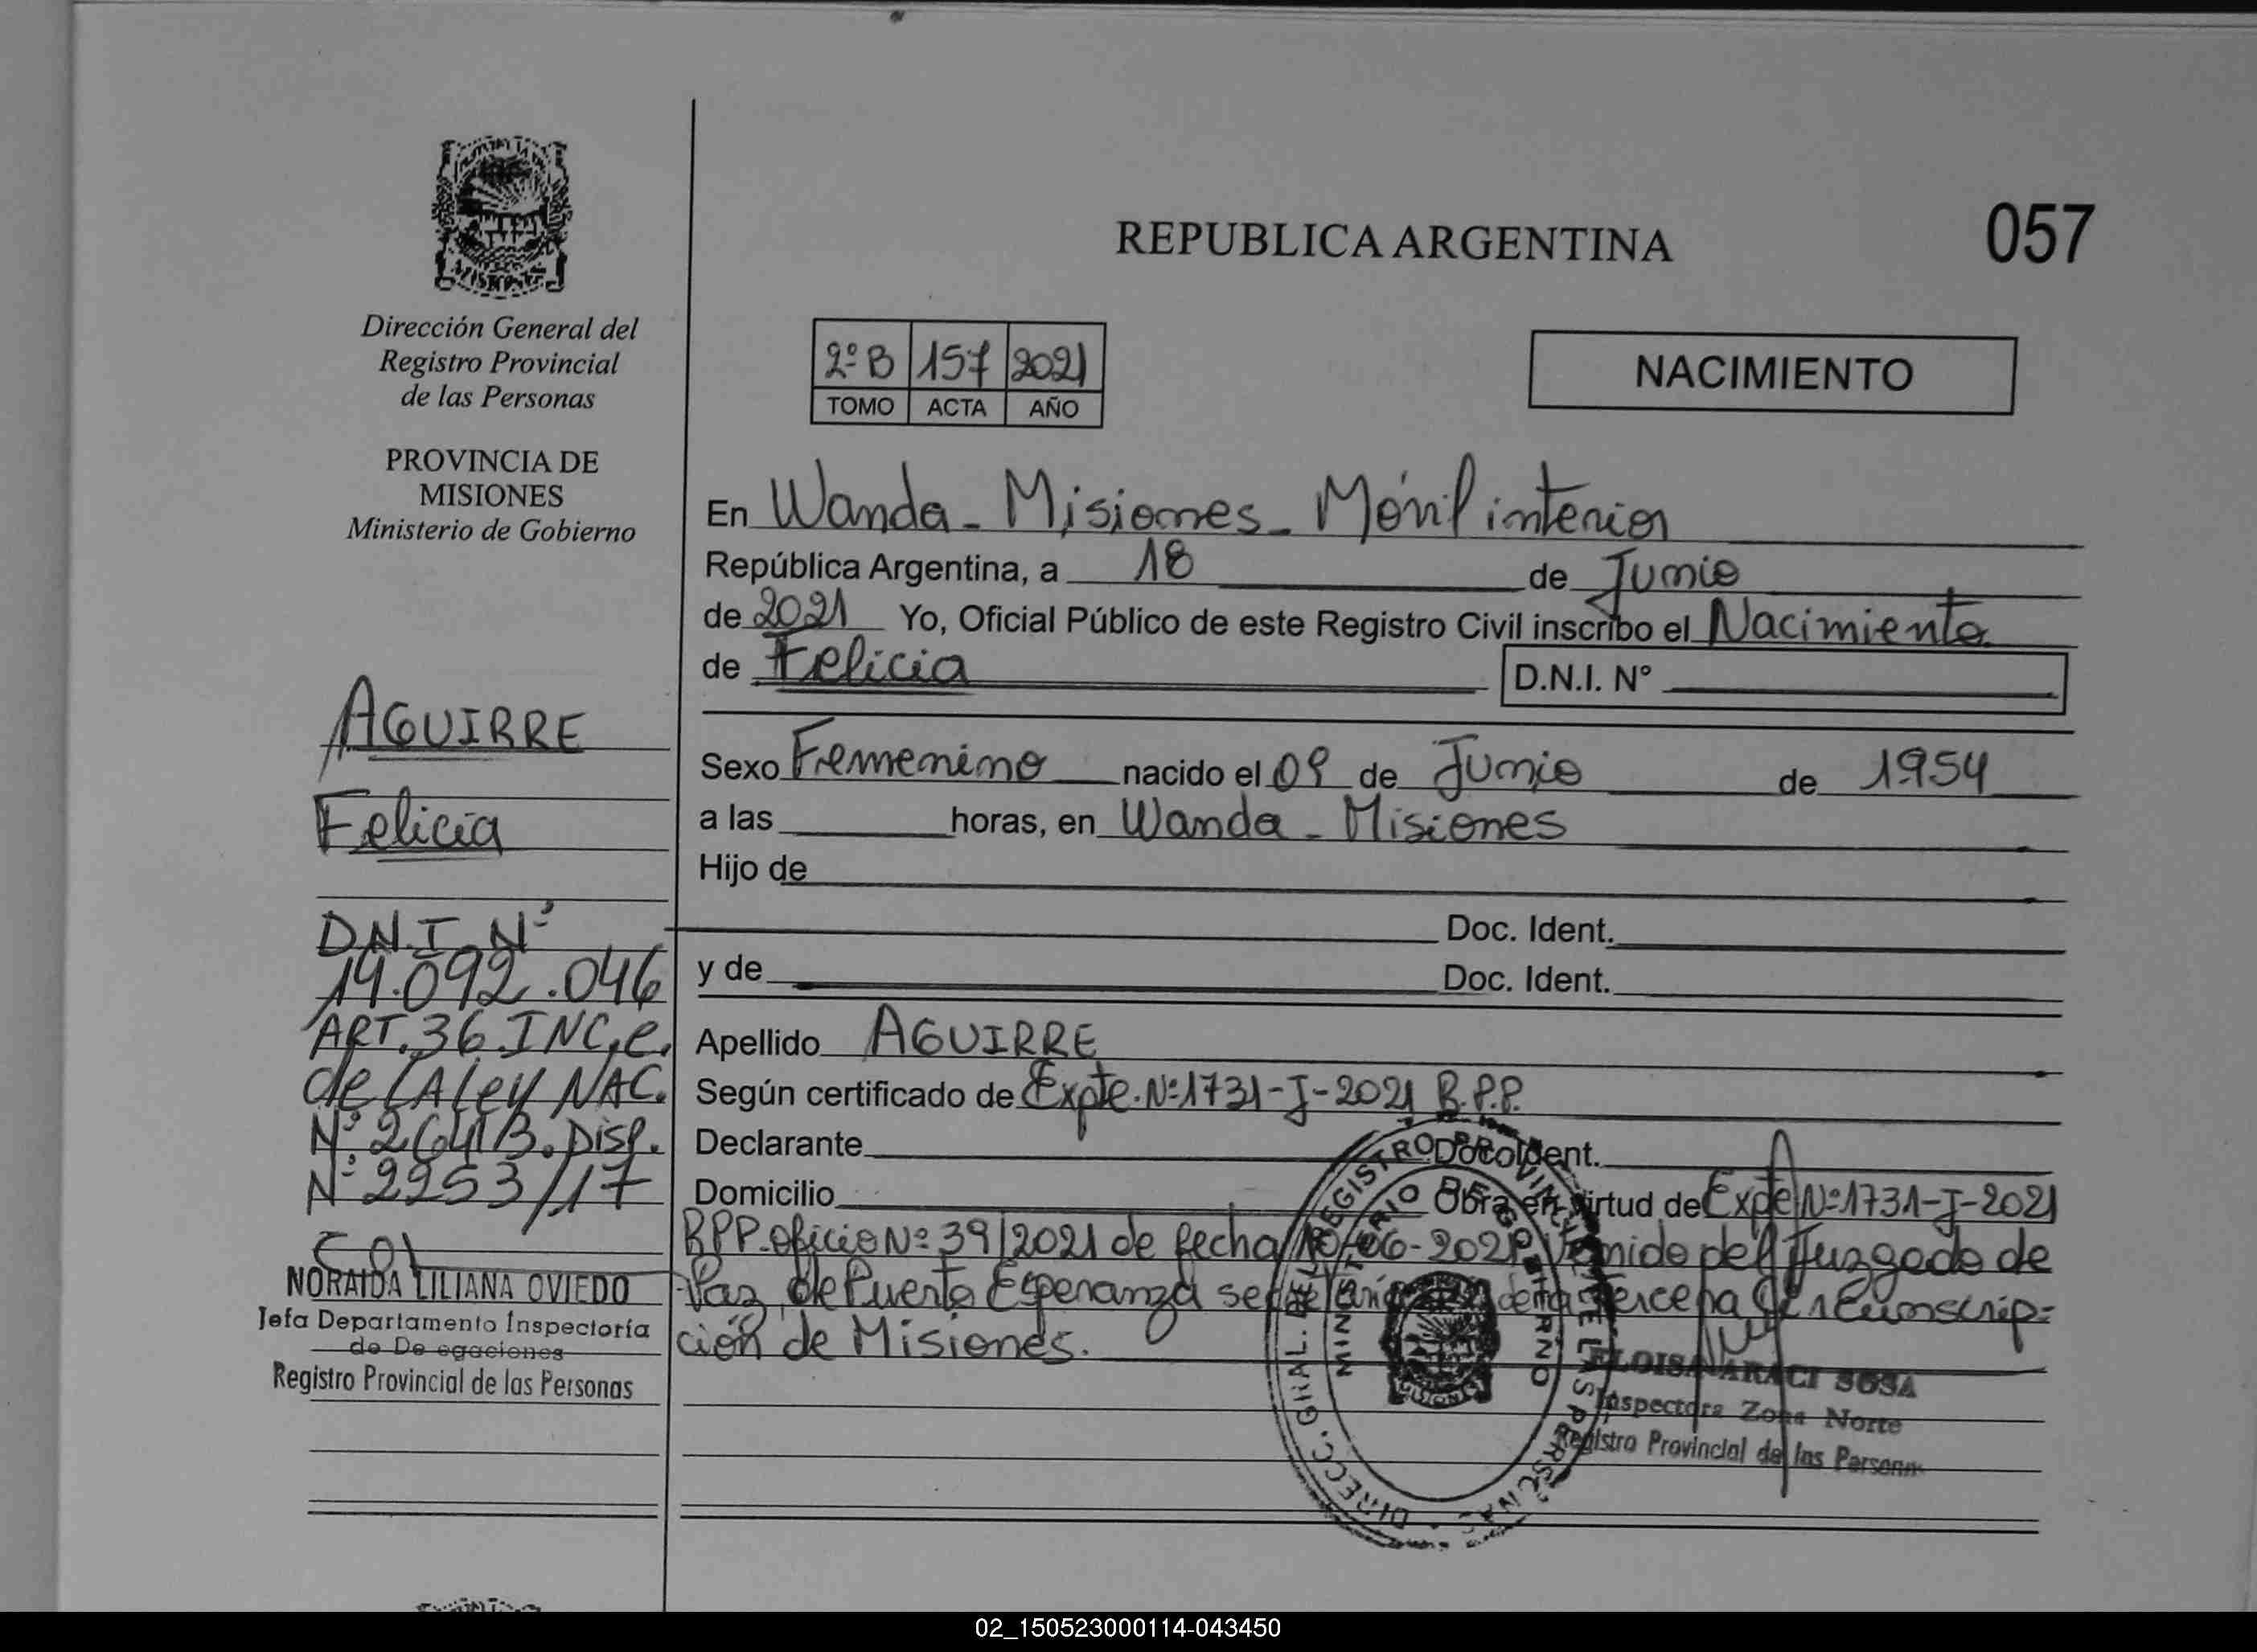 REPUBLICA ARGENTINA
057
MISIONES
Dirección General del
Registro Provincial
de las Personas
PROVINCIA DE
MISIONES
Ministerio de Gobierno
2º B 157 2021
TOMO ACTA AÑO
NACIMIENTO
AGUIRRE
Felicia
D.N.I. Nº
14.092.046
ART. 36. INC. e.
de LA ley NAC.
Nº 26413. DISP.
Nº 2253/17
NORAIDA LILIANA OVIEDO
Jefa Departamento Inspectoría
de De egaciones
Registro Provincial de las Personas
En Wanda - Misiones - Móvil interior
República Argentina, a 18 de Junio
de 2021 Yo, Oficial Público de este Registro Civil inscribo el Nacimiento
de Felicia D.N.I. N°
Sexo Femenino nacido el 09 de Junio de 1954
a las horas, en Wanda - Misiones
Hijo de
Doc. Ident.
y de Doc. Ident.
Apellido AGUIRRE
Según certificado de Expte. Nº 1731-J-2021 R.P.P.
Declarante Doc. Ident.
Domicilio Obra en virtud de Expte Nº 1731-J-2021
RPP. oficio Nº 39/2021 de fecha 10-06-2021 del Juzgado de
Paz de Puerto Esperanza de la Tercera Circunscrip-
ción de Misiones.
DIRECC. GRAL. DEL REGISTRO PROVINCIAL DE LAS PERSONAS
MINISTERIO DE GOBIERNO
MISIONES
ELOISA ARACI SOSA
Inspectora Zona Norte
Registro Provincial de las Personas
02_150523000114-043450